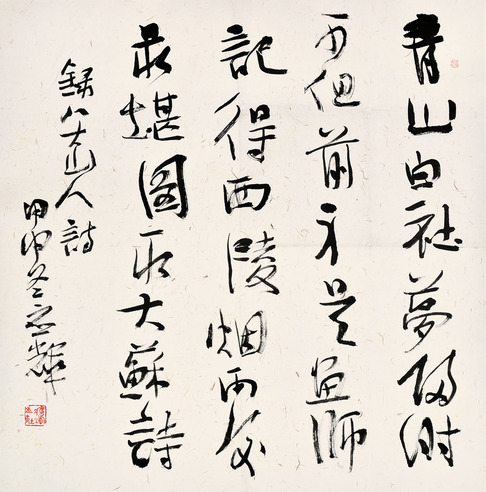 青山白社夢歸時
可但前身是畫師
記得西陵烟雨後
最堪圖取大蘇詩
錄八大山人詩
甲申冬